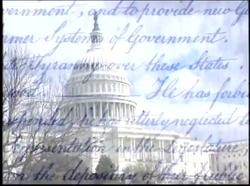 vernment, and to provide new G
rmer Systems of Government.
Tyranny over these States.
He has forbid
pended, he has utterly neglected to
presentation in the Legislature
on the depository of their Public